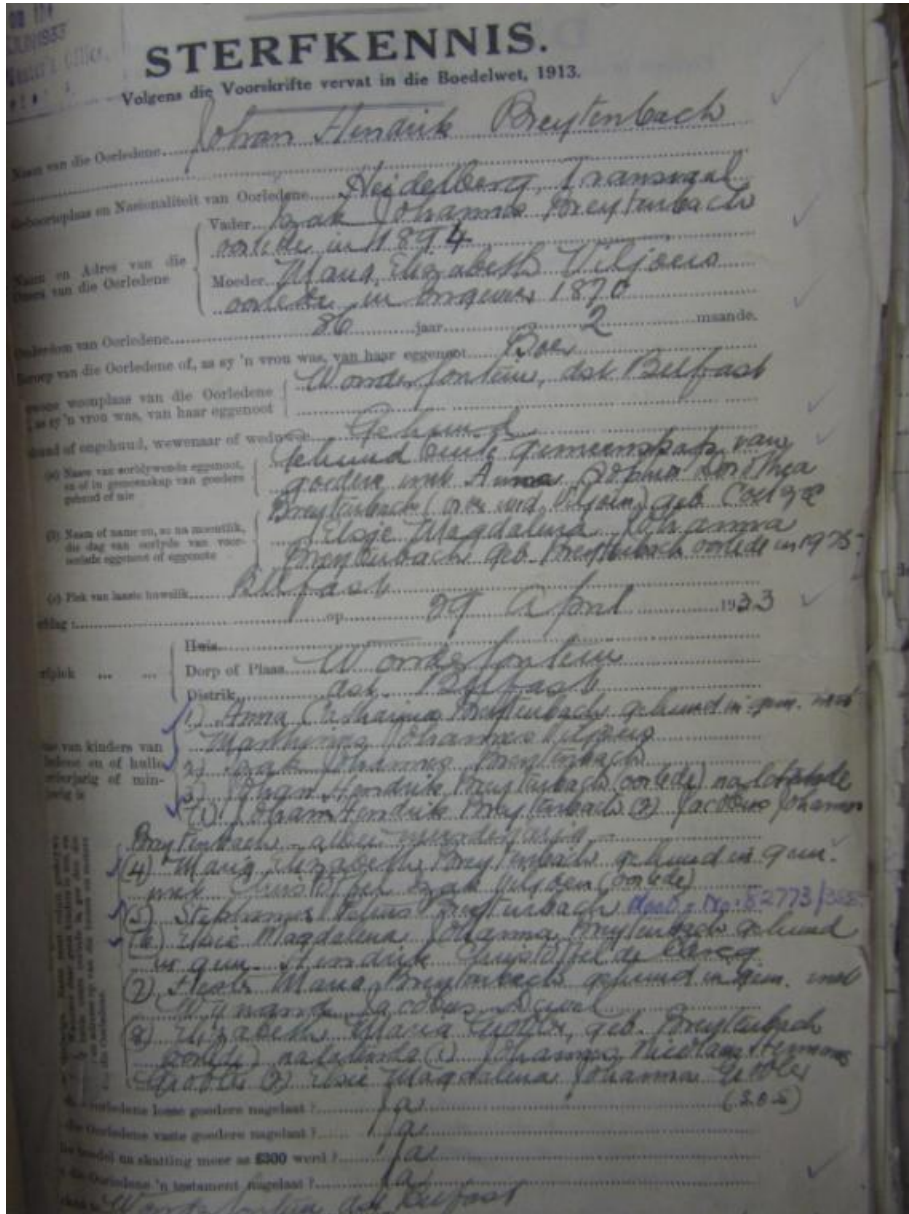 JUN 1933
Master's Office,
STERFKENNIS.
Volgens die Voorskrifte vervat in die Boedelwet, 1913.
Naam van die Oorledene Johan Hendrik Breytenbach
Geboorteplaas en Nasionaliteit van Oorledene Heidelberg, Transvaal
Vader Izak Johannes Breytenbach
oorlede in 1894
Naam en Adres van die
Ouers van die Oorledene
Moeder Maria Elizabeth Viljoen
oorlede in 1870
Ouderdom van Oorledene 86 jaar 2 maande.
Beroep van die Oorledene of, as sy 'n vrou was, van haar eggenoot Boer
Gewone woonplaas van die Oorledene Wonderfontein, dist Belfast
of, as sy 'n vrou was, van haar eggenoot
Gehuud of ongehuud, wewenaar of weduwee Gehuud
(a) Naam van oorblywende eggenoot,
en of in gemeenskap van goedere
gehuud of nie
Gehuud buite gemeenskap van
goedere met Anna Sophia Dorothea
Breytenbach Viljoen) geb. Coetzee
(b) Naam of name en, so na moontlik,
die dag van oorlyde van voor-
oorlede eggenoot of eggenote
Elsje Magdalena Johanna
Breytenbach geb. Breytenbach oorlede in
(c) Plek van laaste huwelik Belfast
op 29 April 1933
Huis
Dorp of Plaas Wonderfontein
Distrik dist. Belfast
1) Anna Catharina Breytenbach gehuud in gem. met
Marthinus Johannes Viljoen
van kinders van
2) Izak Johannes Breytenbach
3) Johan Hendrik Breytenbach (oorlede) nalatende
(1) Johan Hendrik Breytenbach (2) Jacobus Johannes
Breytenbach - albei minderjarig -
(4) Maria Elizabeth Breytenbach gehuud in gem.
met Christoffel Izak Viljoen (oorlede)
(5) Stephanus Petrus Breytenbach No. 82773/
(6) Elsie Magdalena Johanna Breytenbach gehuud
in gem. Hendrik Christoffel de Clercq
(7) Hester Maria Breytenbach gehuud in gem. met
Wynand Jacobus
(8) Elizabeth Maria Grobler, geb. Breytenbach
(oorlede) nalatende (1) Johannes Nicolaas Hermanus
Grobler (2) Elsie Magdalena Johanna Grobler
die Oorledene losse goedere nagelaat? Ja
die Oorledene vaste goedere nagelaat? Ja
boedel na skatting meer as £300 werd? Ja
die Oorledene 'n testament nagelaat? Ja
Wonderfontein dist Belfast